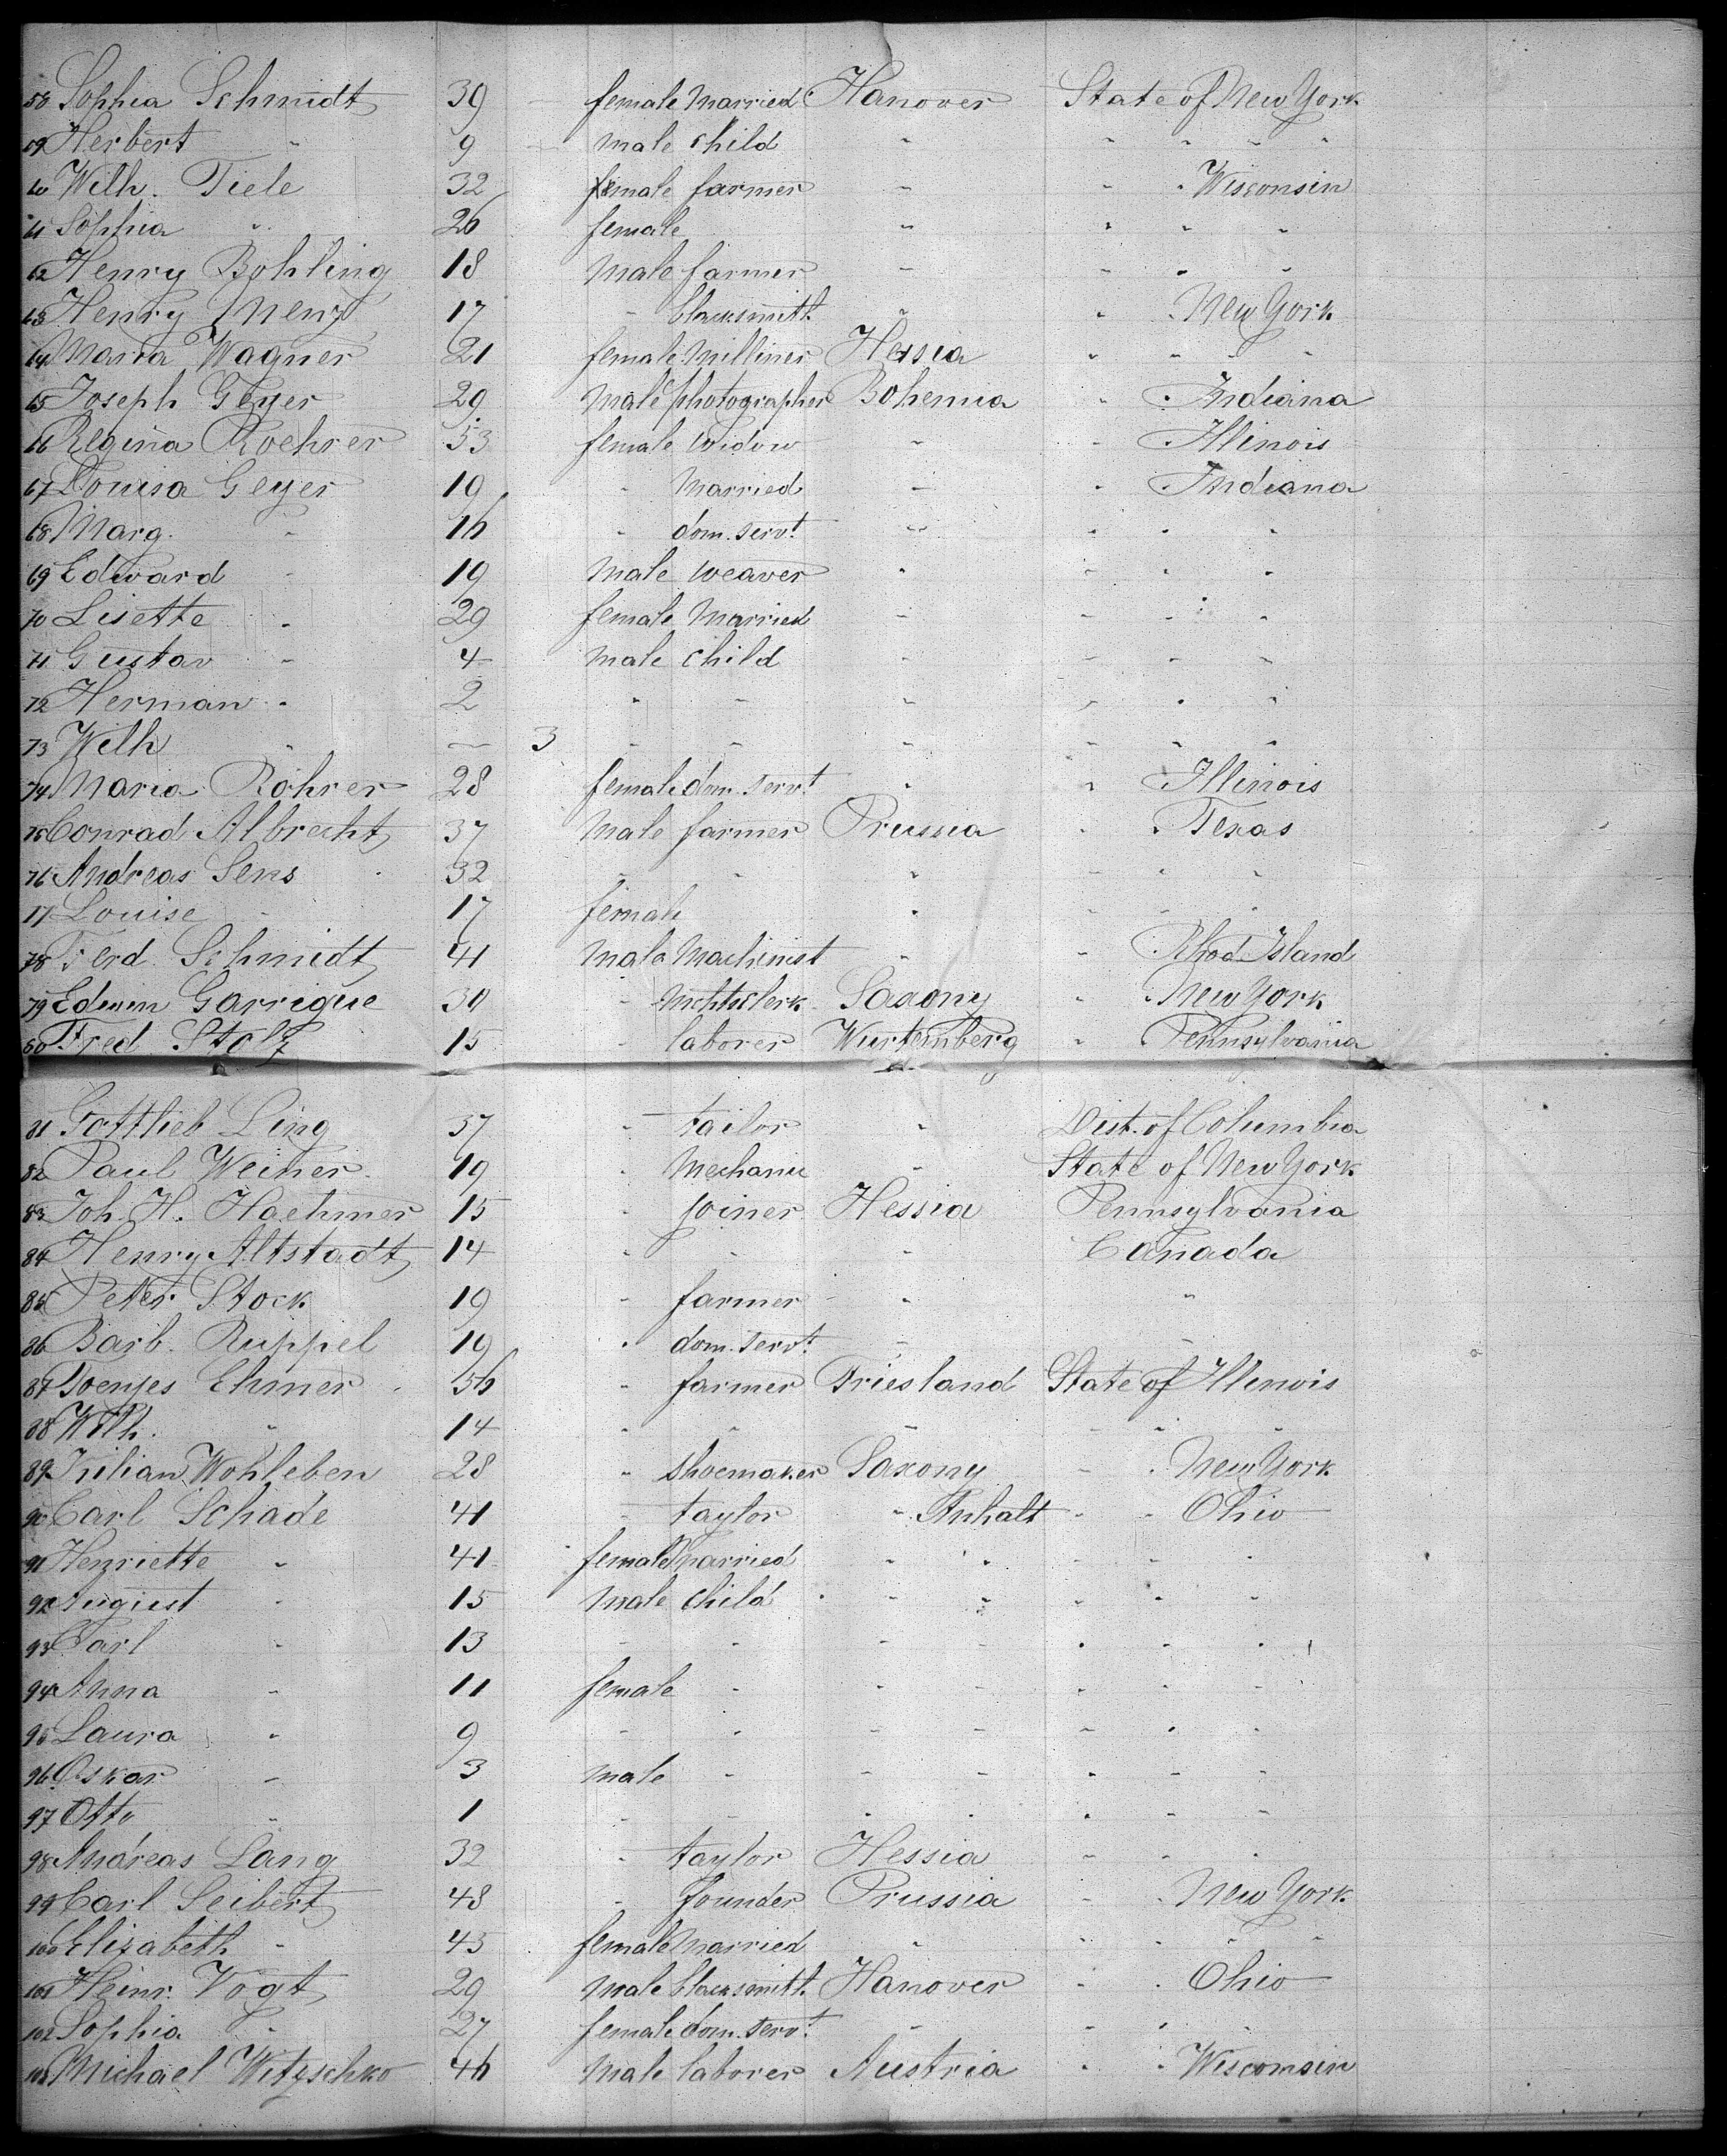 58 Sophia Schmidt 39 female married Hanover State of New York
59 Herbert " 9 male child " " " " "
60 Wilh. Tiele 32 male farmer " " " Wisconsin
61 Sophia " 26 female " " " "
62 Henry Bohling 18 male farmer " " " "
63 Henry Menz 17 " blacksmith " " " New York
64 Maria Wagner 21 female milliner Hessia " " " "
65 Joseph Geyer 29 male photographer Bohemia " " Indiana
66 Regina Roehrer 53 female widow " " " Illinois
67 Louisa Geyer 19 " married " " " Indiana
68 Marg. " 16 " dom. servt " " " "
69 Edward " 19 male weaver " " " "
70 Lisette " 29 female married " " " "
71 Gustav " 4 male child " " " "
72 Herman " 2 " " " " " "
73 Wilh " — 3 " " " " " "
74 Maria Röhrer 28 female dom. servt " " Illinois
75 Conrad Albrecht 37 male farmer Prussia " " Texas
76 Andreas Sens 32 " " " " " "
77 Louise " 17 female " " " "
78 Ferd. Schmidt 41 male machinist " " " Rhod Island
79 Edwin Garrigue 30 " mchtsclerk Saxony " " New York
80 Fred Stolz 15 " laborer Wurtemberg " " Pennsylvania
81 Gottlieb Ling 37 " tailor " Dist. of Columbia
82 Paul Weiner 19 " mechanic " State of New York
83 Joh. H. Haehmer 15 " joiner Hessia Pennsylvania
84 Henry Altstadt 14 " " " Canada
85 Peter Stock 19 " farmer " "
86 Barb. Ruppel 19 " dom. servt " "
87 Toenjes Ehmer 56 " farmer Friesland State of Illinois
88 Wilh. " 14 " " " " " "
89 Kilian Wohleben 28 " shoemaker Saxony " " New York
90 Carl Schade 41 " taylor " Anhalt " " Ohio
91 Henriette " 41 female married " " " " "
92 August " 15 male child " " " " "
93 Carl " 13 " " " " " " "
94 Anna " 11 female " " " " " "
95 Laura " 9 " " " " " " "
96 Oskar " 3 male " " " " " "
97 Otto " 1 " " " " " " "
98 Andreas Lang 32 " taylor Hessia " " "
99 Carl Seibert 48 " founder Prussia " " New York
100 Elizabeth " 45 female married " " " " "
101 Heinr. Vogt 29 male blacksmith Hanover " " Ohio
102 Sophia " 27 female dom. servt " " " "
103 Michael Witzschko 46 male laborer Austria " " Wisconsin